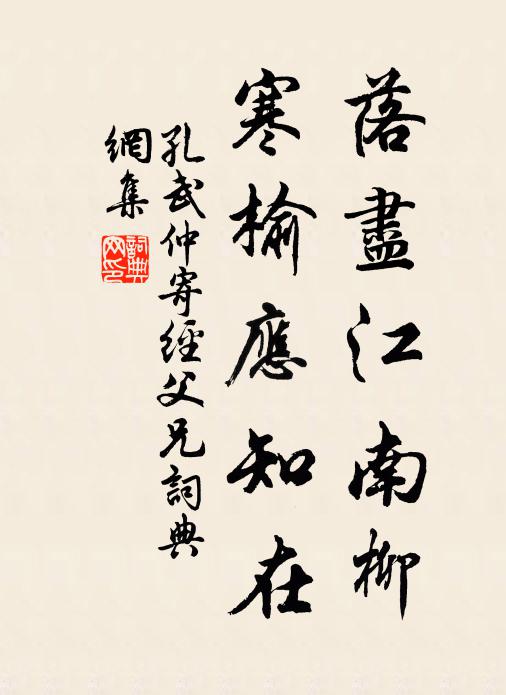 落盡江南柳
寒榆應知在
孔武仲寄經父兄詞典
網集
詞典
网印